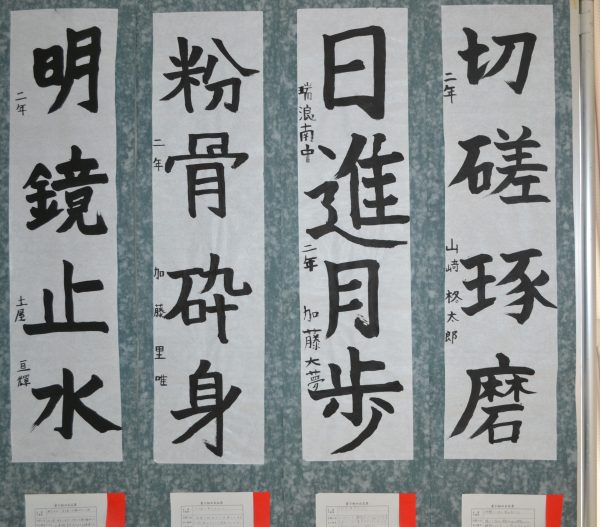 切磋琢磨
二年
山﨑 柊太郎
日進月歩
瑞浪南中
二年
加藤大夢
粉骨砕身
二年
加藤里唯
明鏡止水
二年
土屋亘輝